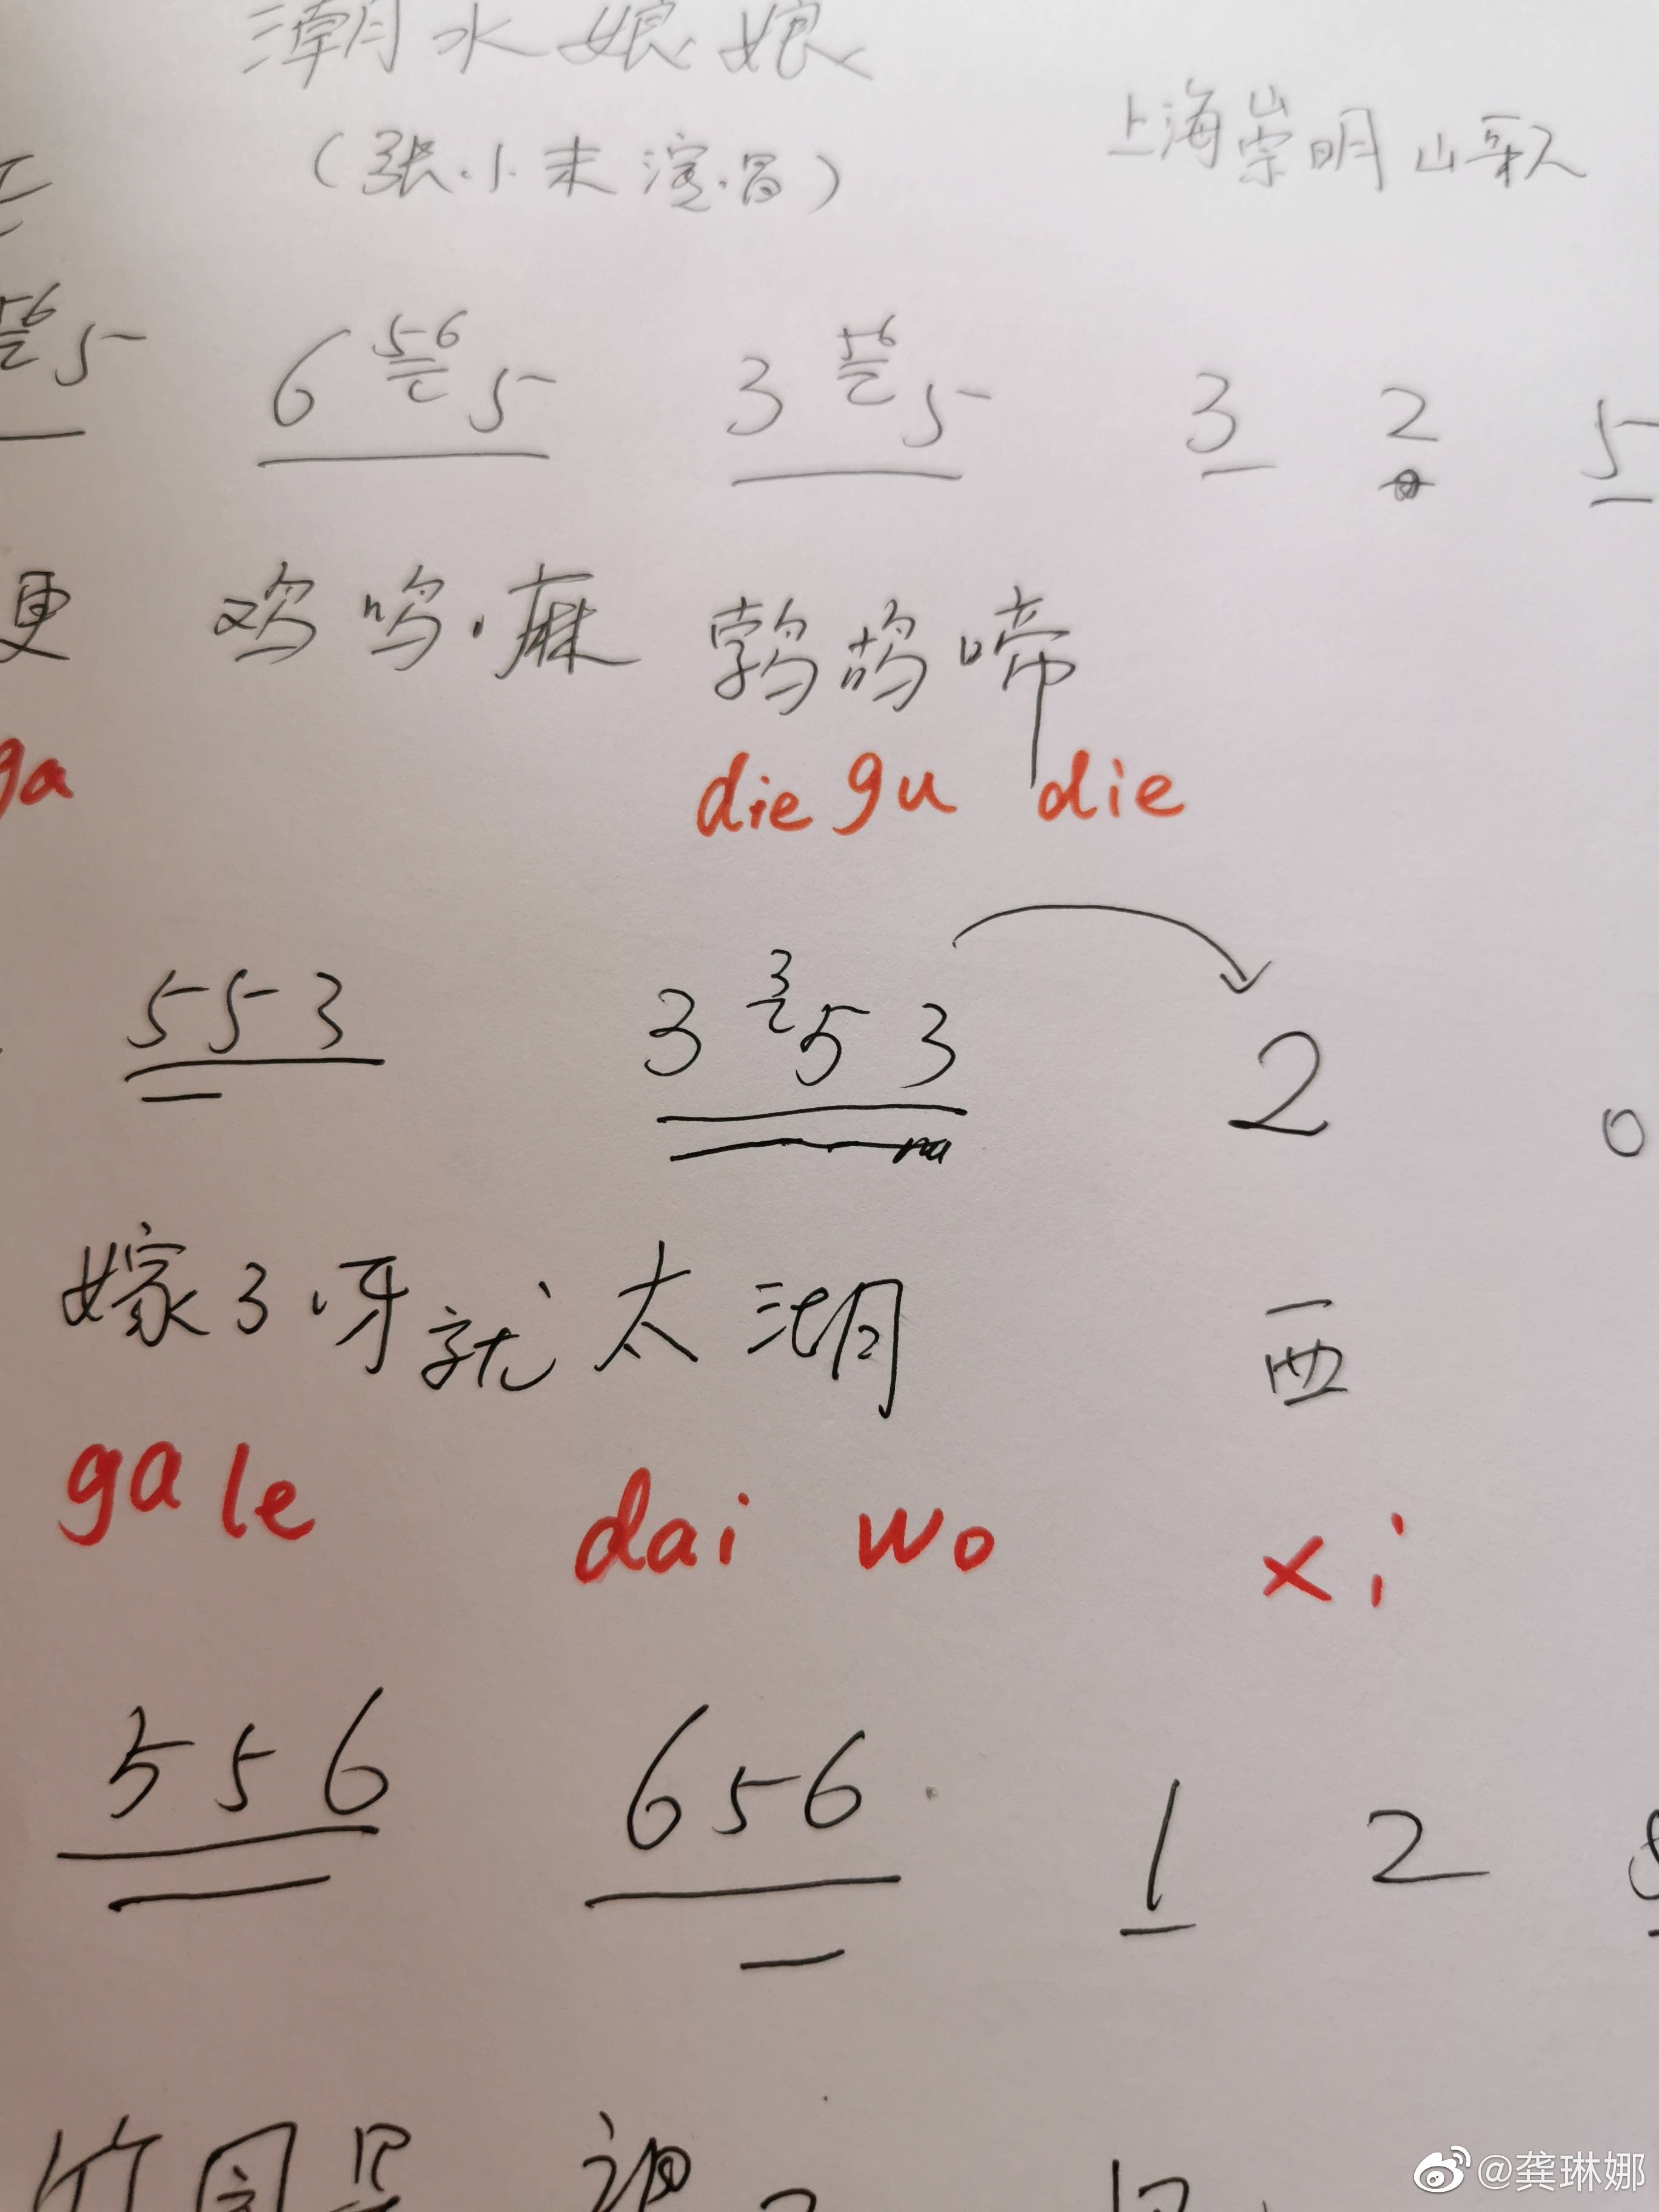 潮水娘娘
(张小末演唱) 上海崇明山歌
56 5 6 56 5 3 56 5 3 2 5
更 鸡鸣·麻 鹁鸪啼
ga die gu die
553 3 3 53 2 0
嫁了呀就太湖 西
ga le dai wo xi
556 656 1 2
@龚琳娜